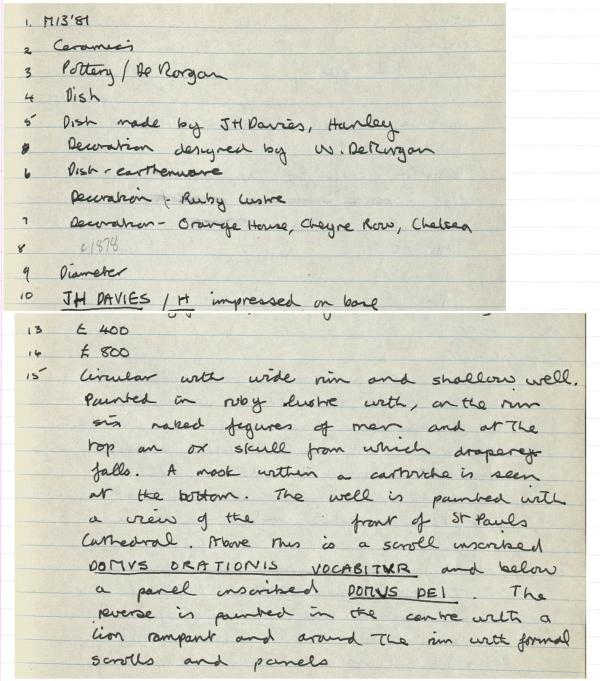 1. M13'81
2 Ceramics
3 Pottery / De Morgan
4 Dish
5 Dish made by JH Davies, Hanley
Decoration designed by W. DeMorgan
6 Dish - earthenware
Decoration - Ruby Lustre
7 Decoration - Orange House, Cheyne Row, Chelsea
8 c1878
9 Diameter
10 JH DAVIES / H impressed on base
13 £ 400
14 £ 800
15 Circular with wide rim and shallow well.
Painted in ruby lustre with, on the rim
six naked figures of men and at the
top an ox skull from which drapery
falls. A mask within a cartouche is seen
at the bottom. The well is painted with
a view of the front of St Pauls
Cathedral. Above this is a scroll inscribed
DOMVS ORATIONIS VOCABITVR and below
a panel inscribed DOMVS DEI. The
reverse is painted in the centre with a
lion rampant and around the rim with formal
scrolls and panels